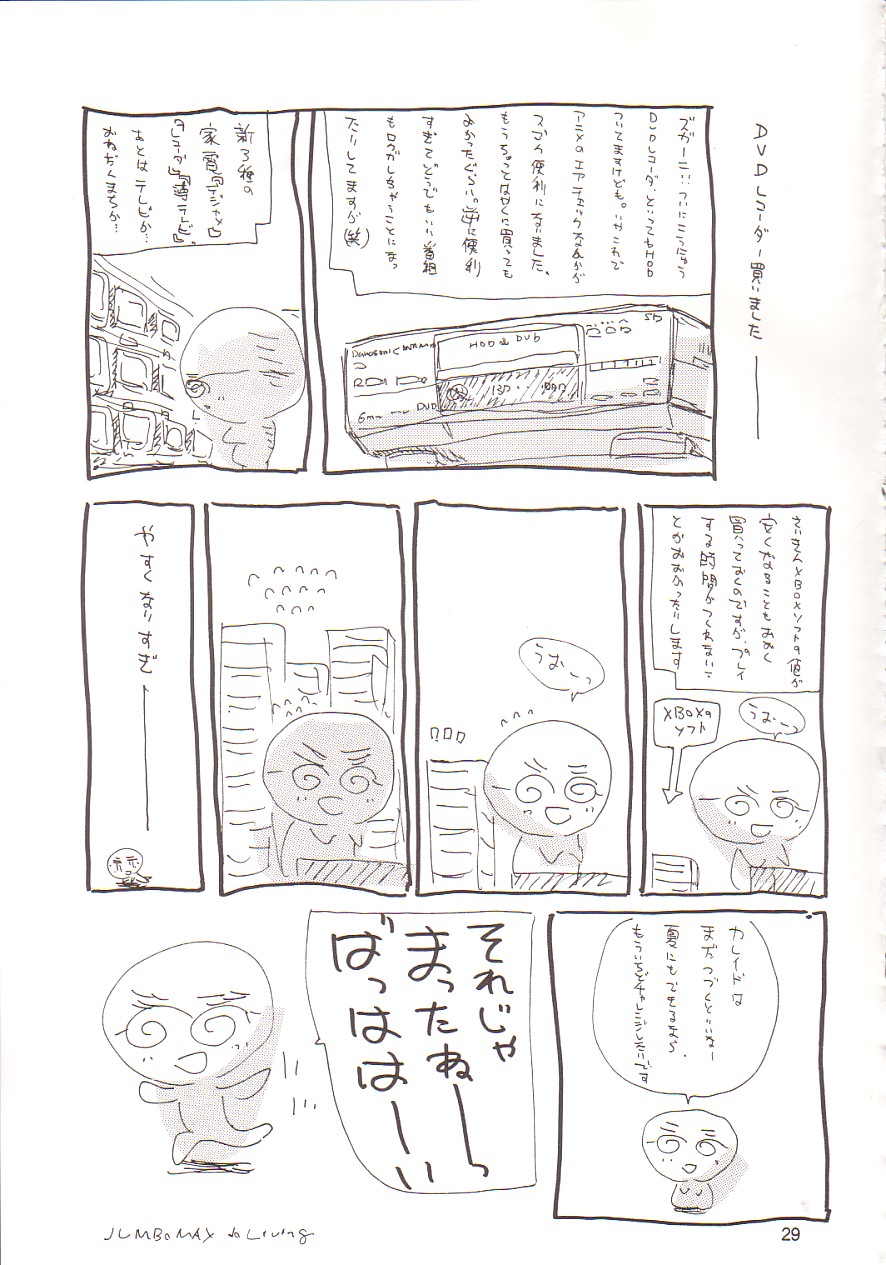 DVDレコーダー買いました――
ズガーン…ついにこうにゅう
DVDレコーダ、といってもHDD
ついてますけども。いやこれで
アニメのエアチェックなんかが
スゴク便利になりました。
もうちょっとはやくに買っても
よかったぐらい。逆に便利
すぎてどうでもいい番組
もロクガしちゃうことになっ
たりしてますが(笑)
Panasonic
HDD & DVD
SD
DVD
新3種の
家電『デジカメ』
『レコーダ』『薄テレビ』。
あとはテレビか…
おねだんまちか…
さいきんXBOXソフトの値が
安くなることもおおく
買っておくのですが、プレイ
する時間がつくれないこ
とがおおかったりします
うおーっ
XBOXの
ソフト
うおーっ
やすくなりすぎ――
カレイドは
まだつづくといいねー
夏にもできるなら、
もういちどチャレンジしたいです
それじゃ
まったねーっ
ばっはは―い
JUMBOMAX do Living
29